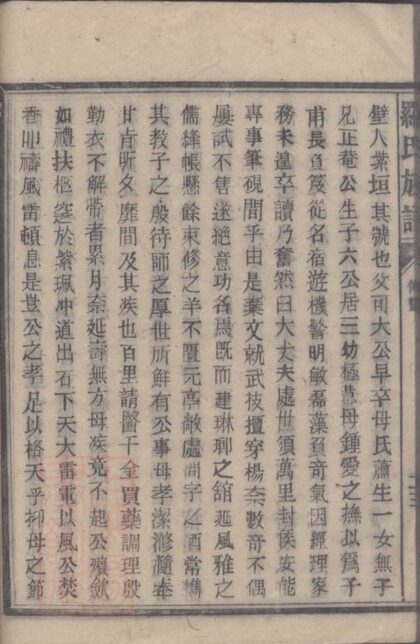 羅氏族譜
壁人業垣其號也父可大公早卒母氏蕭生一女無子
兄正菴公生子六公居三幼極慧母鍾愛之撫以爲子
甫長負笈從名宿遊機警明敏磊落負奇氣因經理家
務未遑卒讀乃奮然曰大丈夫處世須萬里封侯安能
專事筆硯間乎由是棄文就武技擅穿楊奈數奇不偶
屢試不售遂絕意功名焉旣而建琳瑯之舘延風雅之
儒絳帳懸餘束修之羊不匱元亭敞處問字之酒常攜
其教子之殷待師之厚世所鮮有公事母孝潔滫瀡奉
甘旨昕夕靡間及其疾也百里請醫千金買藥調理殷
勤衣不解帶者累月奈延壽無方母疾竟不起公殯斂
如禮扶柩窆於紫珮冲道出石下天大雷電以風公焚
香叩禱風雷頓息是豈公之孝足以格天乎抑母之節